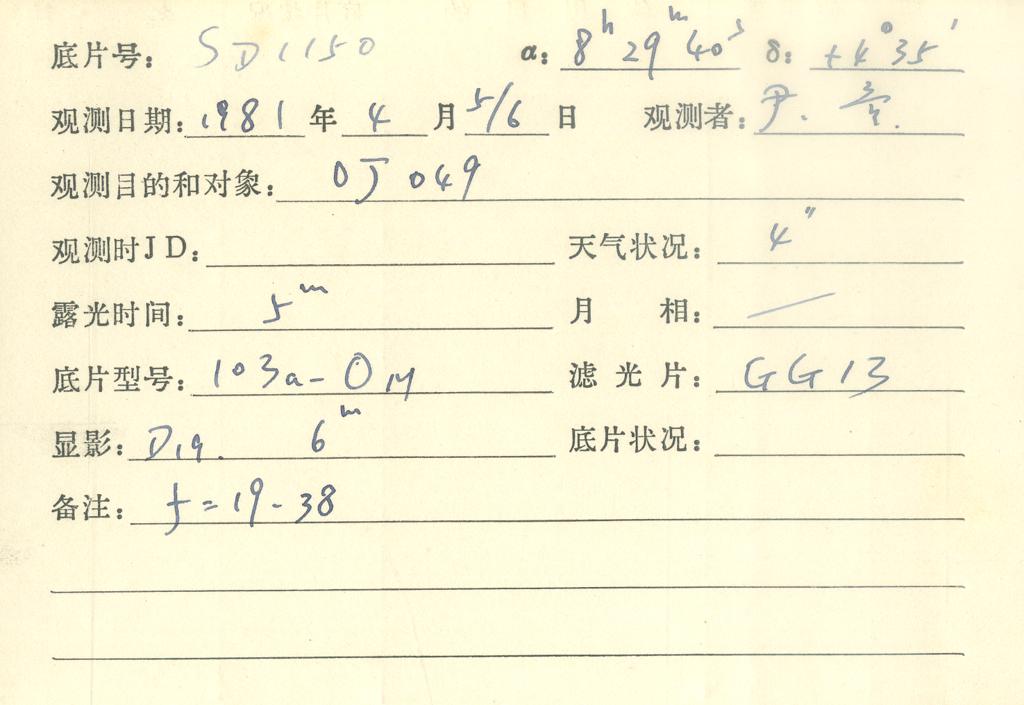 底片号: SD1150 α: 8h 29m 40s δ: +4° 35′
观测日期: 1981 年 4 月 5/6 日 观测者: 尹.
观测目的和对象: OJ 049
观测时JD: 天气状况: 4″
露光时间: 5m 月 相: —
底片型号: 103a-O 滤光片: GG13
显影: D19. 6m 底片状况:
备注: f=19-38